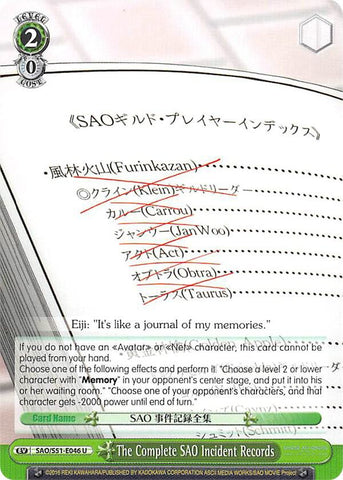 LEVEL
2
0
COST
《SAOギルド・プレイヤーインデックス》
・風林火山(Furinkazan)
◎クライン(Klein)ギルドリーダー
カルー(Carrou)
ジャンウー(JanWoo)
アクト(Act)
オブトラ(Obtra)
トーラス(Taurus)
Eiji: "It's like a journal of my memories."
If you do not have an «Avatar» or «Net» character, this card cannot be played from your hand.
Choose one of the following effects and perform it. "Choose a level 2 or lower character with "Memory" in your opponent's center stage, and put it into his or her waiting room." "Choose one of your opponent's characters, and that character gets -2000 power until end of turn."
Card Name
SAO 事件記録全集
EV
SAO/S51-E046 U
The Complete SAO Incident Records
©2016 REKI KAWAHARA/PUBLISHED BY KADOKAWA CORPORATION ASCII MEDIA WORKS/SAO MOVIE Project